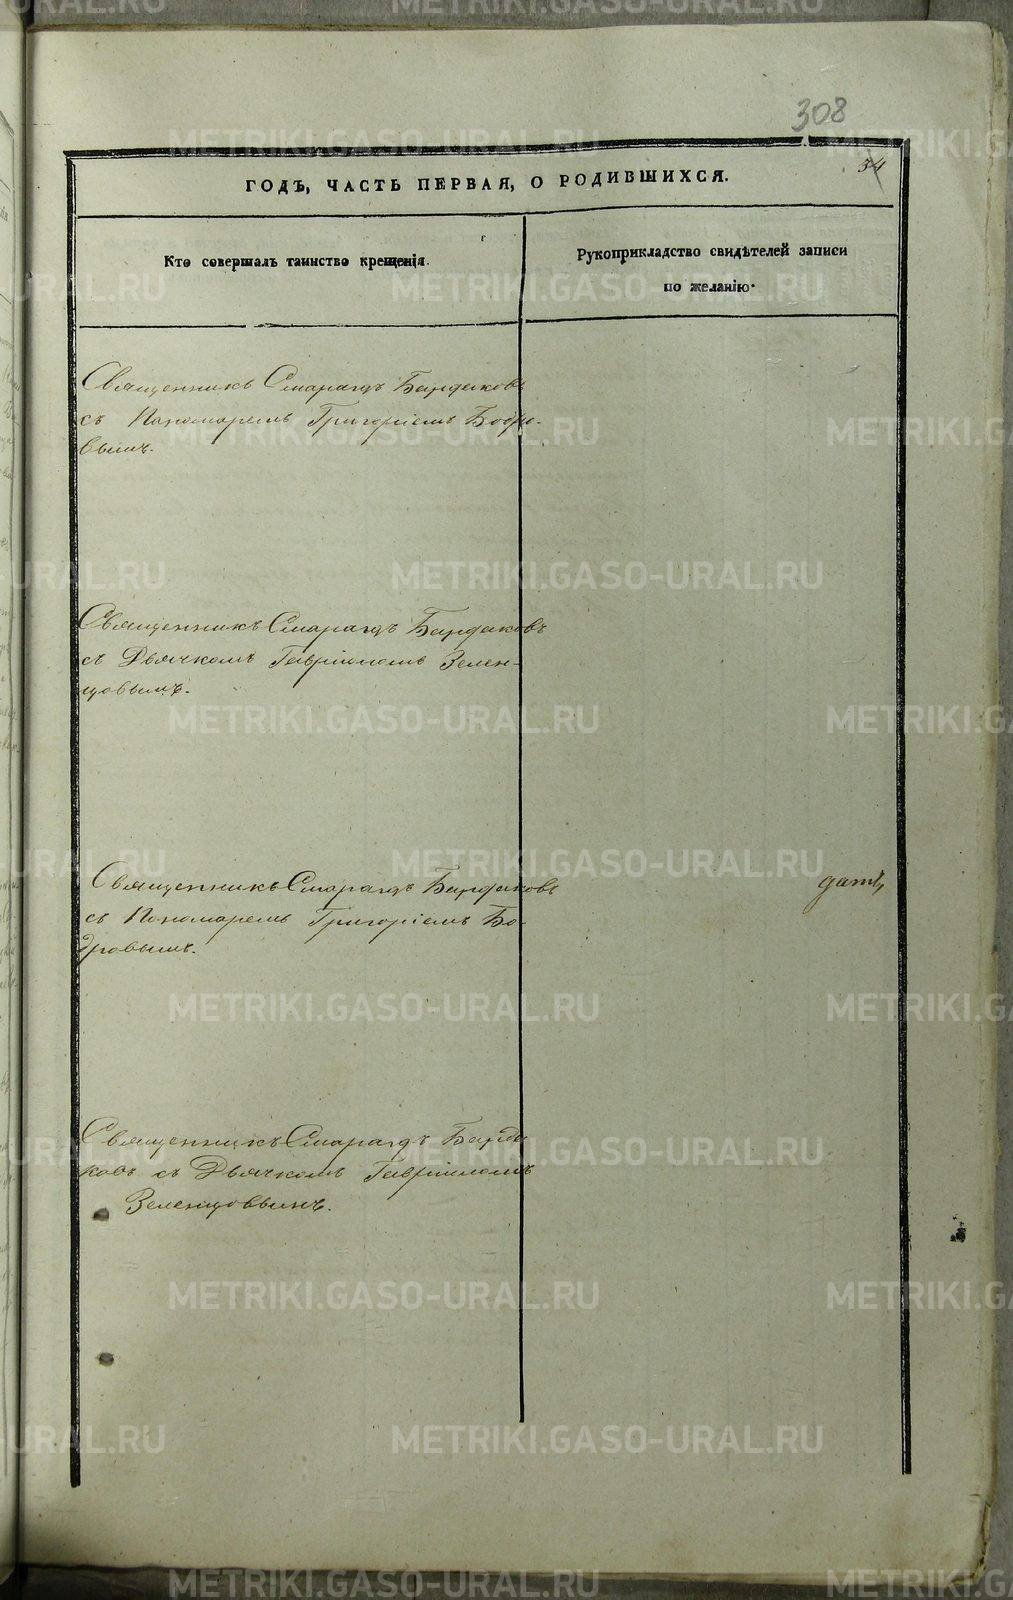 308
34
ГОДЪ, ЧАСТЬ ПЕРВАЯ, О РОДИВШИХСЯ.
Кто совершалъ таинство крещенія.
Рукоприкладство свидѣтелей записи
по желанію.
Священникъ Смарагдъ Бардаковъ
съ Пономаремъ Григоріемъ Бобро-
вымъ.
Священникъ Смарагдъ Бардаковъ
съ Дьячкомъ Гавріиломъ Зелен-
цовымъ.
Священникъ Смарагдъ Бардаковъ
съ Пономаремъ Григоріемъ Бо-
бровымъ.
дать,
Священникъ Смарагдъ Барда
ковъ съ Дьячкомъ Гавріиломъ
Зеленцовымъ.
METRIKI.GASO-URAL.RU